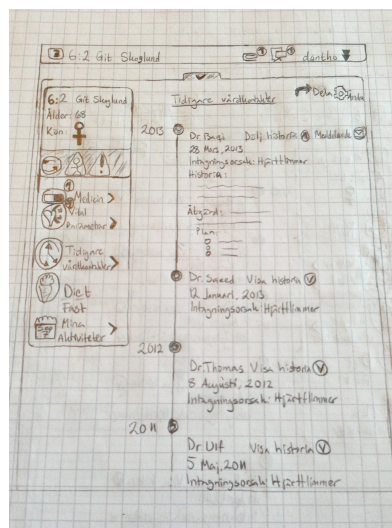 6:2 Git Skoglund
1
1
dantho
6:2 Git Skoglund
Ålder: 68
Kön:
!
1
Medicin >
Vital
Parametrar >
Tidigare
vårdkontakter >
Diet
Fast
Mina
Aktiviteter >
Tidigare vårdkontakter
Dela
2013
Dr Baqi Dölj historia Meddelande
28 Mars, 2013
Intagningsorsak: Hjärtflimmer
Historia:
Åtgärd:
Plan:
Dr. Saeed Visa historia
12 Januari, 2013
Intagningsorsak: Hjärtflimmer
2012
Dr. Thomas Visa historia
8 Augusti, 2012
Intagningsorsak: Hjärtflimmer
2011
Dr Ulf Visa historia
5 Maj, 2011
Intagningsorsak: Hjärtflimmer